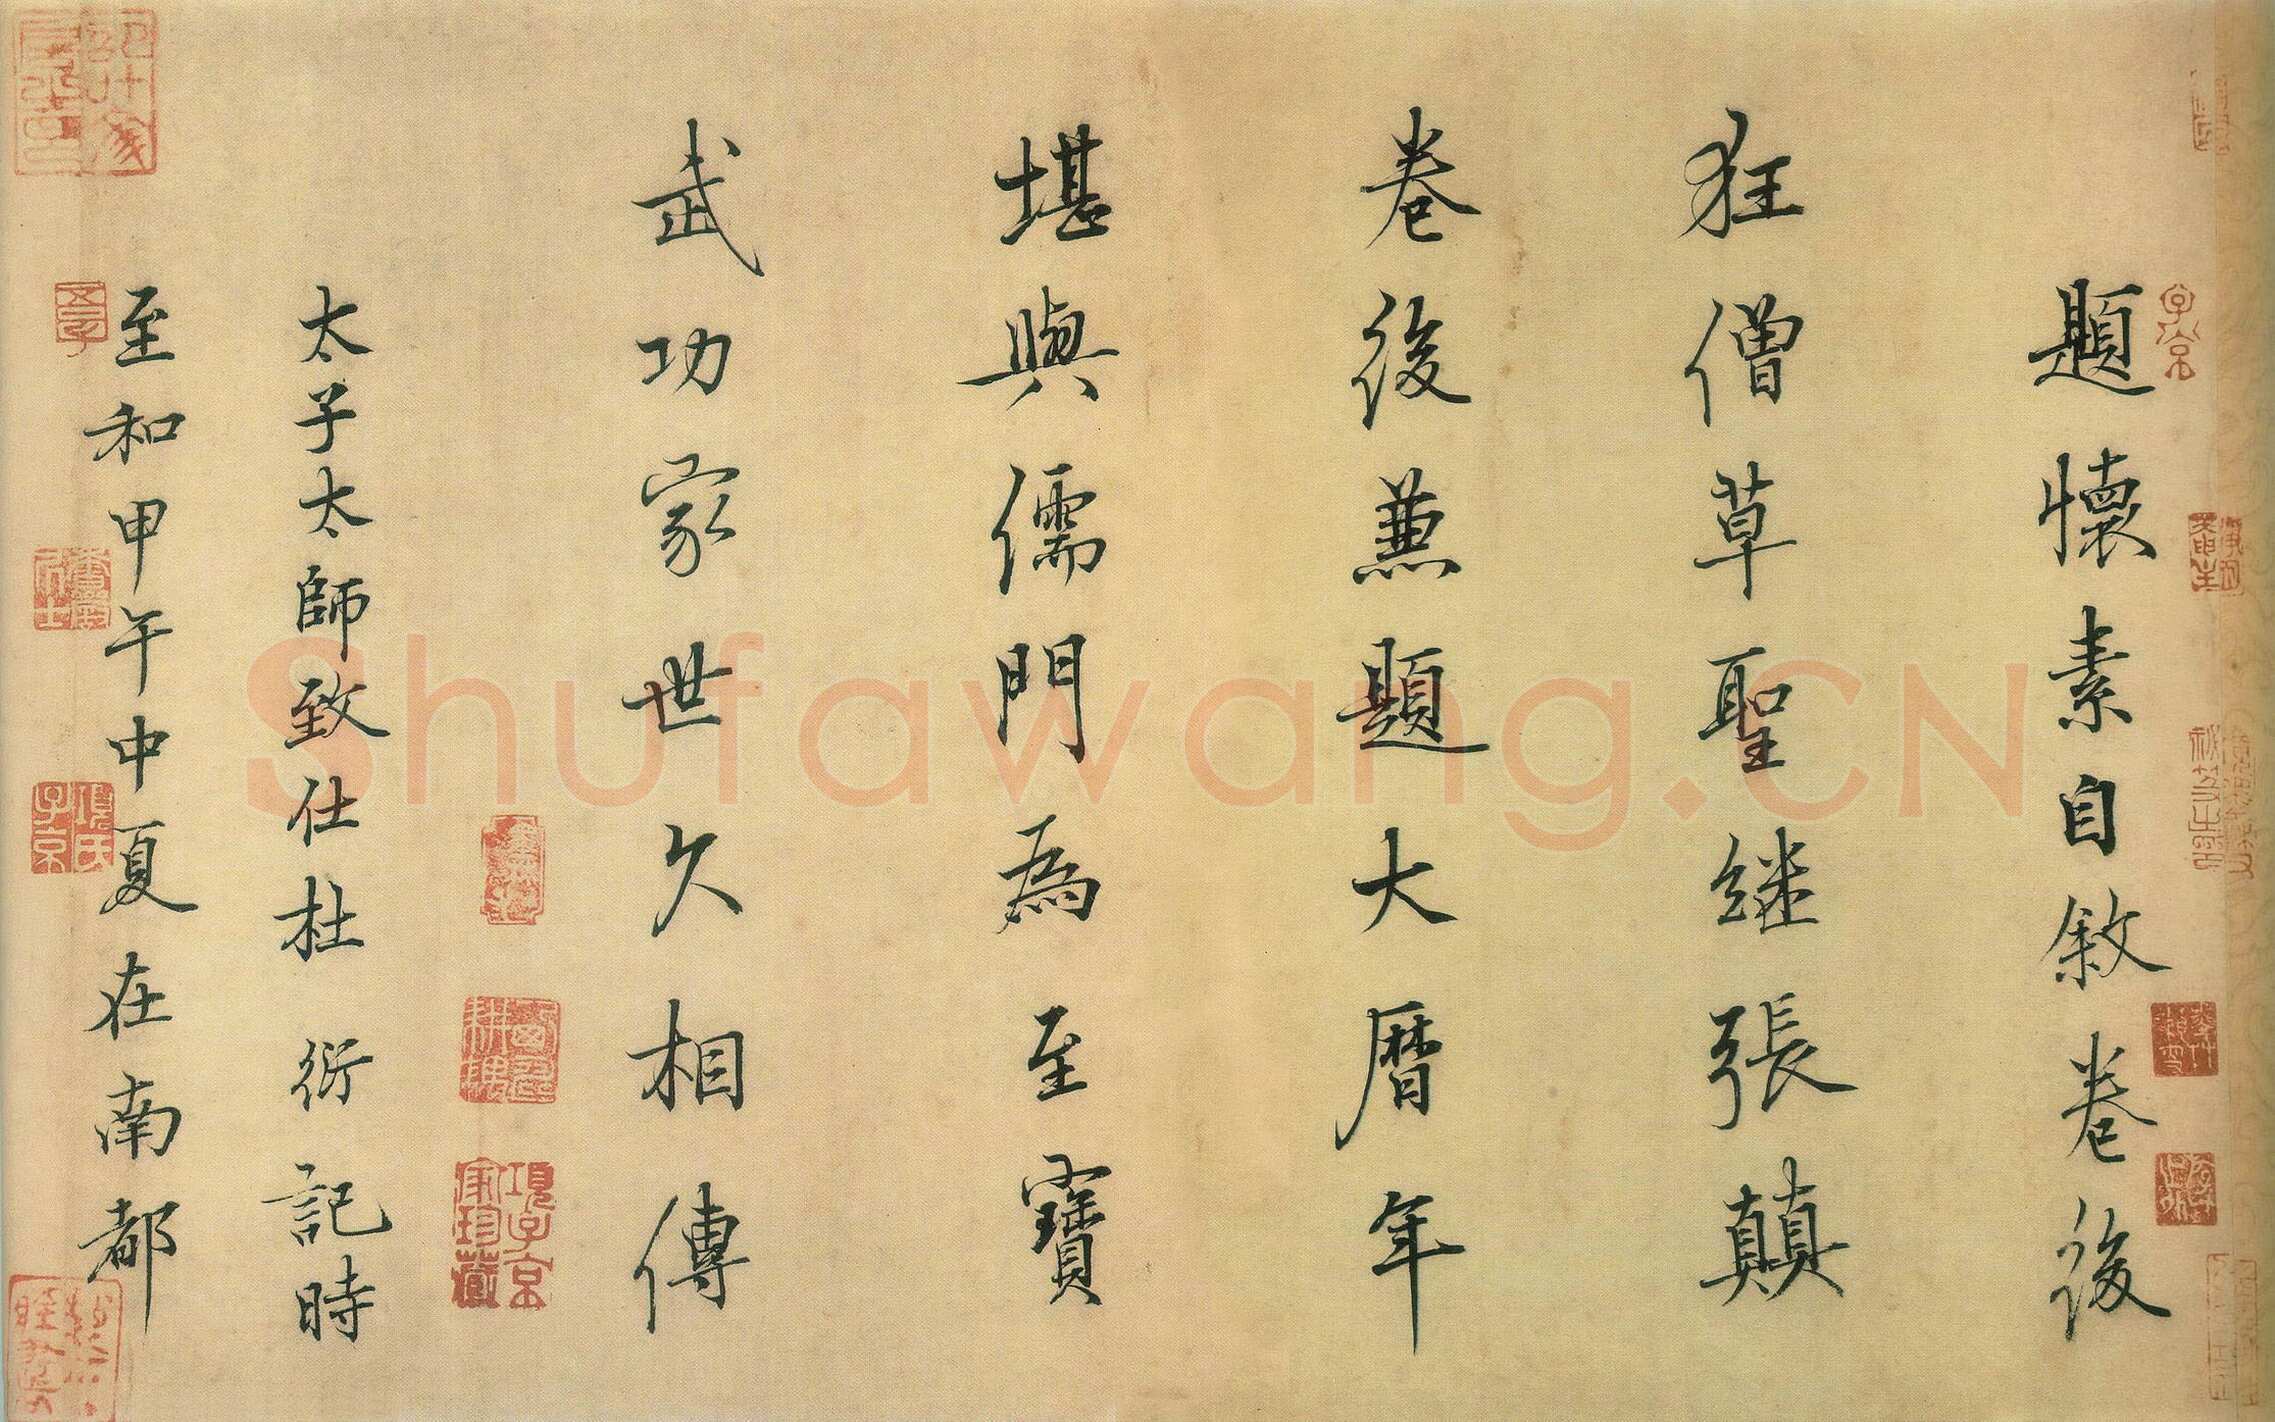 題懷素自敘卷後
狂僧草聖継張顛
卷後兼題大曆年
堪與儒門為至寶
武功家世久相傳
太子太師致仕杜衍記時
至和甲午中夏在南都
項子京家珍藏
項氏子京
子京
Shufawang.CN